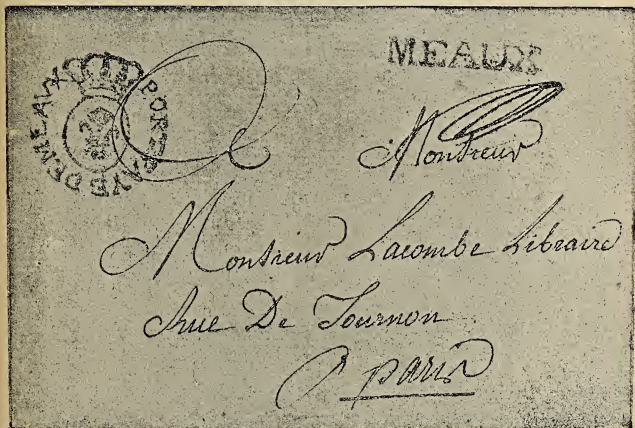 MEAUX
PORT PAYÉ DE MEAUX
Monsieur
Monsieur Lacombe Libraire
Rue De Tournon
A paris